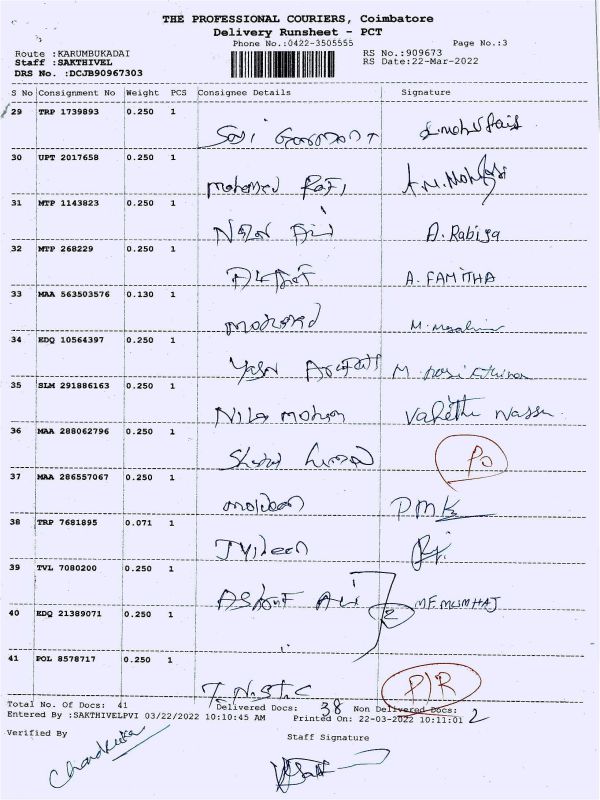 THE PROFESSIONAL COURIERS, Coimbatore
Delivery Runsheet - PCT
Phone No.:0422-3505555 Page No.:3
Route :KARUMBUKADAI RS No.:909673
Staff :SAKTHIVEL RS Date:22-Mar-2022
DRS No. :DCJB90967303
S No Consignment No Weight PCS Consignee Details Signature
29 TRP 1739893 0.250 1
30 UPT 2017658 0.250 1
Mohamed Rafi
31 MTP 1143823 0.250 1
Ali A. Rabiya
32 MTP 268229 0.250 1
A. FAMITHA
33 MAA 563503576 0.130 1
Mohamed M.
34 EDQ 10564397 0.250 1
Yasar Arafath M.
35 SLM 291886163 0.250 1
Nila Mohan
36 MAA 288062796 0.250 1
PO
37 MAA 286557067 0.250 1
PMK
38 TRP 7681895 0.071 1
39 TVL 7080200 0.250 1
Ashraf Ali 2 MF MUMHAJ
40 EDQ 21389071 0.250 1
41 POL 8578717 0.250 1
T.N.S.T.C P/R
Total No. Of Docs: 41 Delivered Docs: 38 Non Delivered Docs: 2
Entered By :SAKTHIVELPVI 03/22/2022 10:10:45 AM Printed On: 22-03-2022 10:11:01
Verified By Staff Signature